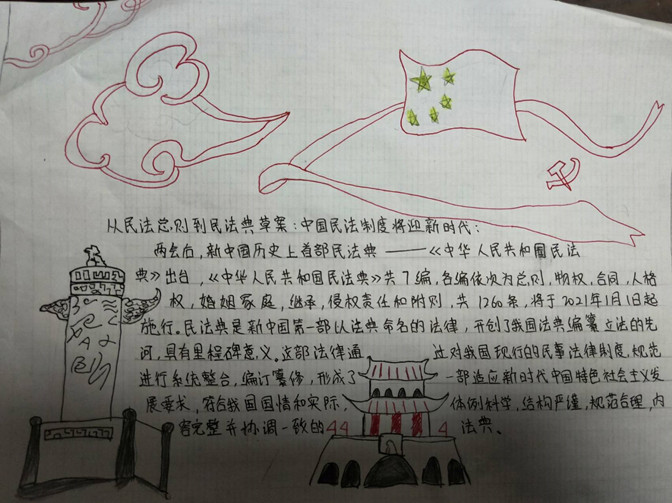 从民法总则到民法典草案：中国民法制度将迎新时代：
两会后，新中国历史上首部民法典——《中华人民共和国民法
典》出台，《中华人民共和国民法典》共7编，各编依次为总则，物权，合同，人格
权，婚姻家庭，继承，侵权责任和附则，共1260条，将于2021年1月1日起
施行。民法典是新中国第一部以法典命名的法律，开创了我国法典编纂立法的先
河，具有里程碑意义。这部法律通过对我国现行的民事法律制度，规范
进行系统整合，编订纂修，形成了一部适应新时代中国特色社会主义发
展要求，符合我国国情和实际，体例科学，结构严谨，规范合理，内
容完整并协调一致的法典。